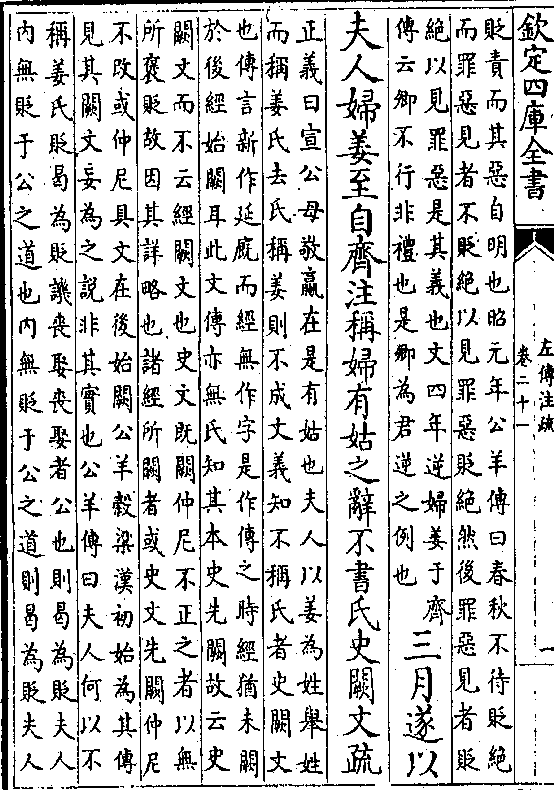 欽定四庫全書
左傳注疏
卷二十一
一
貶責而其惡自明也昭元年公羊傳曰春秋不待貶絶
而罪惡見者不貶絶以見罪惡貶絶然後罪惡見者貶
絶以見罪惡是其義也文四年逆婦姜于齊
傳云卿不行非禮也是卿為君逆之例也
三月遂以
夫人婦姜至自齊注稱婦有姑之辭不書氏史闕文疏
正義曰宣公母敬嬴在是有姑也夫人以姜為姓舉姓
而稱姜氏去氏稱姜則不成文義知不稱氏者史闕文
也傳言新作延廐而經無作字是作傳之時經猶未闕
於後經始闕耳此文傳亦無氏知其本史先闕故云史
闕文而不云經闕文也史文既闕仲尼不正之者以無
所褒貶故因其詳略也諸經所闕者或史文先闕仲尼
不改或仲尼具文在後始闕公羊穀梁漢初始為其傳
見其闕文妄為之説非其實也公羊傳曰夫人何以不
稱姜氏貶曷為貶譏喪娶喪娶者公也則曷為貶夫人
内無貶于公之道也内無貶于公之道則曷為貶夫人